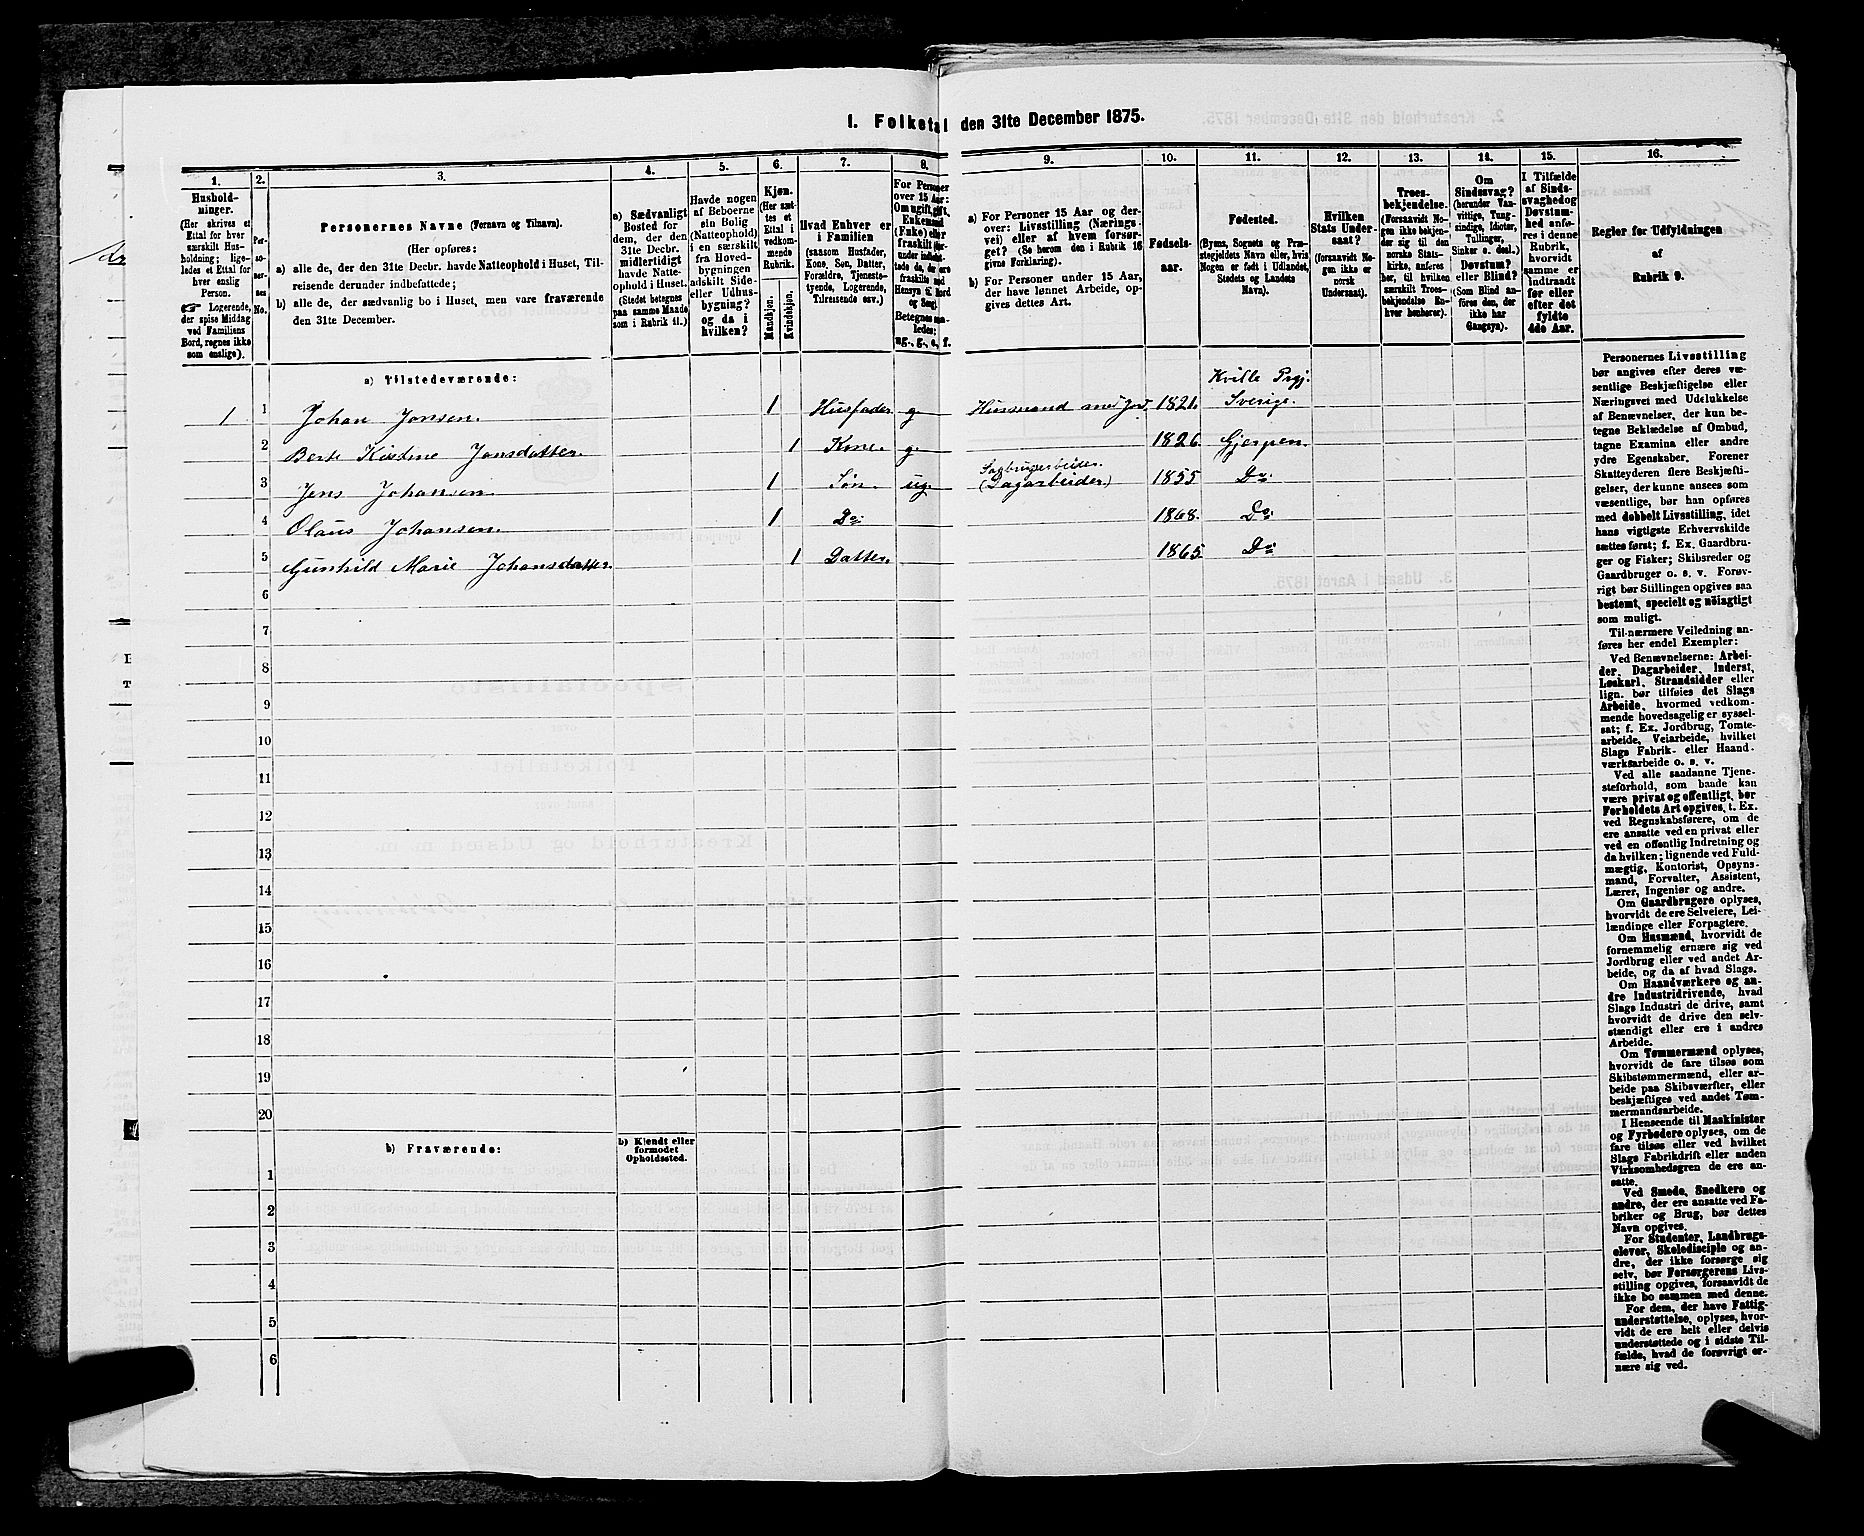 1. Folketal den 31te December 1875.
1.
Hushold-
ninger.
(Her skrives et
Ettal for hver
særskilt Hus-
holdning; lige-
ledes et Ettal for
hver enslig
Person.
☞ Logerende,
der spise Middag
ved Familiens
Bord, regnes ikke
som enslige).
2.
Per-
so-
ner-
nes
No.
3.
Personernes Navne (Fornavn og Tilnavn).
(Her opføres:
a) alle de, der den 31te Decbr. havde Natteophold i Huset, Til-
reisende derunder indbefattede;
b) alle de, der sædvanlig bo i Huset, men vare fraværende
den 31te December.
4.
a) Sædvanligt
Bosted for
dem, der den
31te Decbr.
midlertidigt
havde Natte-
ophold i Huset.
(Stedet betegnes
paa samme Maade
som i Rubrik 11.)
5.
Havde nogen
af Beboerne
sin Bolig
(Natteophold)
i en særskilt
fra Hoved-
bygningen
adskilt Side-
eller Udhus-
bygning?
og da i
hvilken?
6.
Kjøn.
(Her sæt-
tes et
Ettal i
vedkom-
mende
Rubrik.
Mandkjøn.
Kvindekjøn.
7.
Hvad Enhver er
i Familien
(saasom Husfader,
Kone, Søn, Datter,
Forældre, Tjeneste-
tyende, Logerende,
Tilreisende osv.)
8.
For Personer
over 15 Aar:
Om ugift, gift,
Enkemand
(Enke) eller
fraskilt
Betegnes saa-
ledes:
ug., g., e., f.
9.
a) For Personer 15 Aar og der-
over: Livsstilling (Nærings-
vei) eller af hvem forsør-
get? (Se herom den i Rubrik 16
givne Forklaring).
b) For Personer under 15 Aar,
der have lønnet Arbeide, op-
gives dettes Art.
10.
Fødsels-
aar.
11.
Fødested.
(Byens, Sognets og Præ-
stegjeldets Navn eller, hvis
Nogen er født i Udlandet,
Stedets og Landets
Navn).
12.
Hvilken
Stats Under-
saat?
(forsaavidt No-
gen ikke er
norsk
Undersaat).
13.
Troes-
bekjendelse.
(Forsaavidt No-
gen ikke bekjen-
der sig til den
norske Stats-
kirke, anføres
her, til hvilken
særskilt Troes-
bekjendelse En-
hver henhører).
14.
Om
Sindssvag?
(herunder Van-
vittige, Tung-
sindige, Idioter,
Tullinger,
Sinker o. desl.)
Døvstum?
eller Blind?
(Som Blind an-
føres den, der
ikke har
Gangsyn).
15.
I Tilfælde
af Sinds-
svaghed og
Døvstum-
hed anfø-
res i denne
Rubrik,
hvorvidt
samme er
indtraadt
før eller
efter det
fyldte
4de Aar.
16.
Regler for Udfyldningen
af
Rubrik 9.
a) Tilstedeværende:
Kville Prgj.
1 1 Johan Jonsen. 1 Husfader g Husmand med Jord. 1821. Sverige.
2 Berte Kistine Jonsdatter 1 Kone. g. 1826. Gjerpen.
Sagbrugarbeider.
3 Jens Johansen 1 Søn. ug. (Dagarbeider.) 1855 Do
4 Olaus Johansen. 1 Do 1868. Do
5 Gunhild Marie Johansdatter. 1 Datter. 1865 Do
6
7
8
9
10
11
12
13
14
15
16
17
18
19
20
b) Fraværende:
b) Kjendt eller
formodet
Opholdssted.
1
2
3
4
5
6
Personernes Livsstilling
bør angives efter deres væ-
sentlige Beskjæftigelse eller
Næringsvei med Udelukkelse
af Benævnelser, der kun be-
tegne Beklædelse af Ombud,
tagne Examina eller andre
ydre Egenskaber. Forener
Skatteyderen flere Beskjæfti-
gelser, der kunne ansees som
væsentlige, bør han opføres
med dobbelt Livsstilling, idet
hans vigtigste Erhvervskilde
sættes først; f. Ex. Gaardbru-
ger og Fisker; Skibsreder og
Gaardbruger o. s. v. Forøv-
rigt bør Stillingen opgives saa
bestemt, specielt og nøiagtigt
som muligt.
Til nærmere Veiledning an-
føres her endel Exempler:
Ved Benævnelserne: Arbei-
der, Dagarbeider, Inderst,
Løskarl, Strandsidder eller
lign. bør tilføies det Slags
Arbeide, hvormed vedkom-
mende hovedsagelig er syssel-
sat; f. Ex. Jordbrug, Tomte-
arbeide, Veiarbeide, hvilket
Slags Fabrik- eller Haand-
værksarbeide o. s. v.
Ved alle saadanne Tjene-
steforhold, som baade kan
være privat og offentligt, bør
Forholdets Art opgives, t. Ex.
ved Regnskabsførere, om de
ere ansatte ved en privat eller
ved en offentlig Indretning og
da hvilken; lignende ved Fuld-
mægtig, Kontorist, Opsyns-
mand, Forvalter, Assistent,
Lærer, Ingeniør og andre.
Om Gaardbrugere oplyses,
hvorvidt de ere Selveiere, Lei-
lændinge eller Forpagtere.
Om Husmænd, hvorvidt de
fornemmelig ernære sig ved
Jordbrug eller ved andet Ar-
beide, og da af hvad Slags.
Om Haandværkere og an-
dre Industridrivende, hvad
Slags Industri de drive, samt
hvorvidt de drive den selv-
stændigt eller ere i andres
Arbeide.
Om Tømmermænd oplyses,
hvorvidt de fare tilsøs som
Skibstømmermænd, eller ar-
beide paa Skibsværfter, eller
beskjæftiges ved andet Tøm-
mermandsarbeide.
I Henseende til Maskinister
og Fyrbødere oplyses, om de
fare tilsøs eller ved hvilket
Slags Fabrikdrift eller anden
Virksomhedsgren de ere an-
satte.
Ved Smede, Snedkere og
andre, der ere ansatte ved Fa-
briker og Brug, bør dettes
Navn opgives.
For Studenter, Landbrugs-
elever, Skoledisciple og an-
dre, der ikke forsørge sig
selv, bør Forsørgerens Livs-
stilling opgives, forsaavidt de
ikke bo sammen med denne.
For dem, der have Fattig-
understøttelse, oplyses, hvor-
vidt de ere helt eller delvis
understøttede og i sidste Til-
fælde, hvad de forøvrigt er-
nære sig ved.